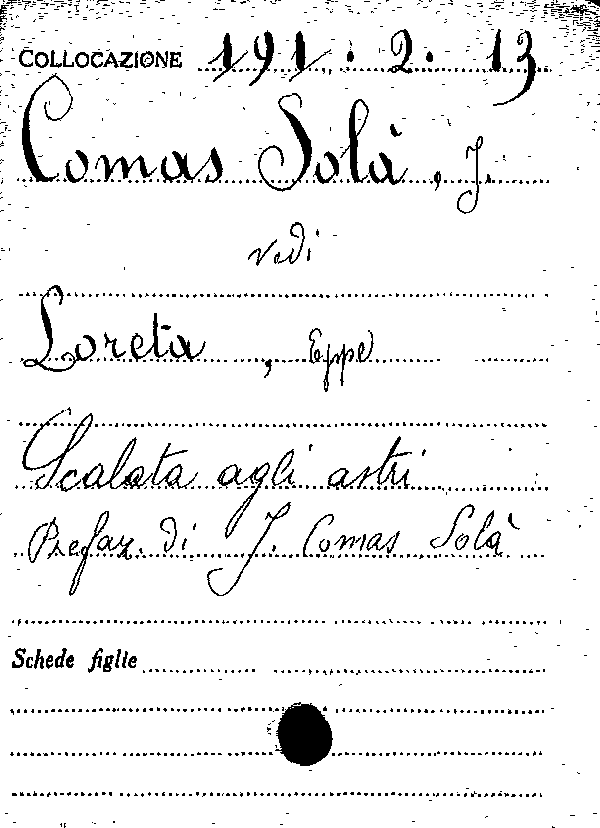 COLLOCAZIONE 191.2.13
Comas Solà, J.
vedi
Loreta, Eppe
Scalata agli astri
Prefaz. di J. Comas Solà
Schede figlie